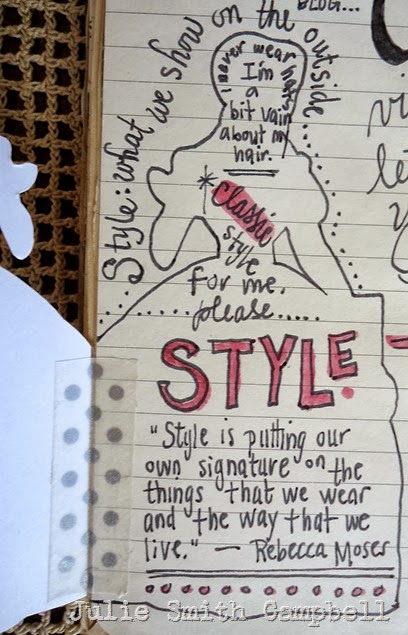 BLOG...
Style: what we show on the outside...
I never wear hats
I'm
a
bit vain
about my
hair.
classic
style
for me,
please.....
STYLE.
"Style is putting our
own signature on the
things that we wear
and the way that we
live." — Rebecca Moses
Julie Smith Campbell